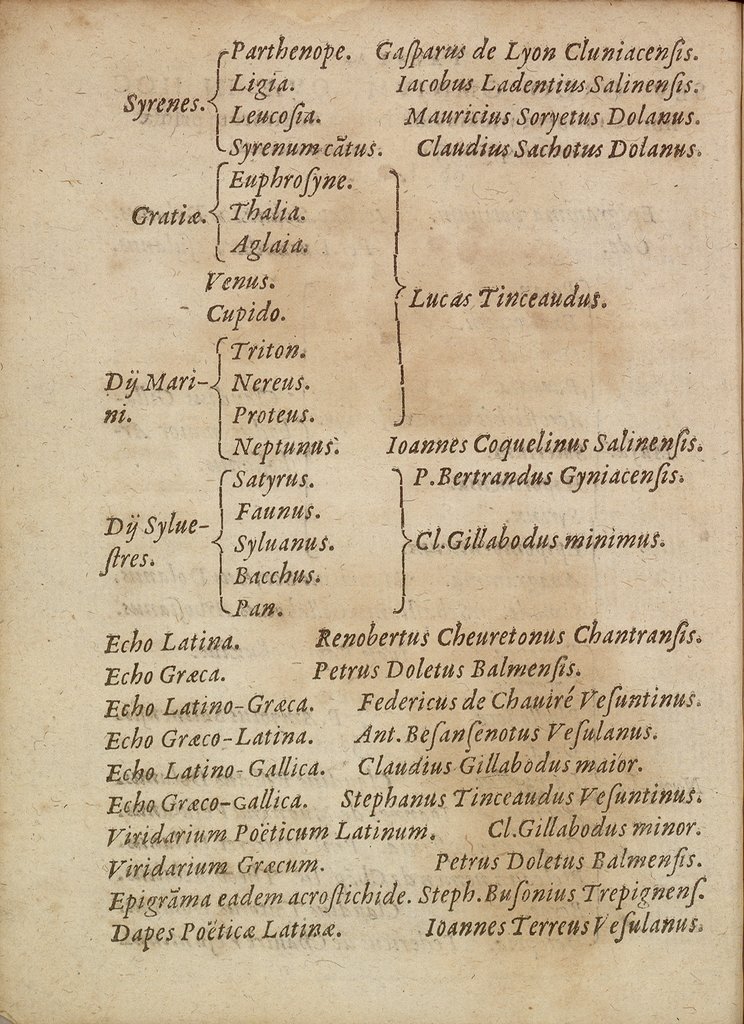 Parthenope. Gaſparus de Lyon Cluniacenſis.
Ligia. Iacobus Ladentius Salinenſis.
Syrenes.
Leucoſia. Mauricius Soryetus Dolanus.
Syrenum cãtus. Claudius Sachotus Dolanus.
Euphroſyne.
Gratiæ. Thalia.
Aglaia.
Venus.
Lucas Tinceaudus.
Cupido.
Triton.
Dij Mari- Nereus.
ni. Proteus.
Neptunus. Ioannes Coquelinus Salinenſis.
Satyrus. P. Bertrandus Gyniacenſis.
Faunus.
Dij Sylue-
Syluanus. Cl. Gillabodus minimus.
ſtres.
Bacchus.
Pan.
Echo Latina. Renobertus Cheuretonus Chantranſis.
Echo Græca. Petrus Doletus Balmenſis.
Echo Latino-Græca. Federicus de Chauiré Veſuntinus.
Echo Græco-Latina. Ant. Beſanſenotus Veſulanus.
Echo Latino-Gallica. Claudius Gillabodus maior.
Echo Græco-Gallica. Stephanus Tinceaudus Veſuntinus.
Viridarium Poëticum Latinum. Cl. Gillabodus minor.
Viridarium Græcum. Petrus Doletus Balmenſis.
Epigrãma eadem acroſtichide. Steph. Buſonius Trepignenſ.
Dapes Poëticæ Latinæ. Ioannes Terreus Veſulanus.